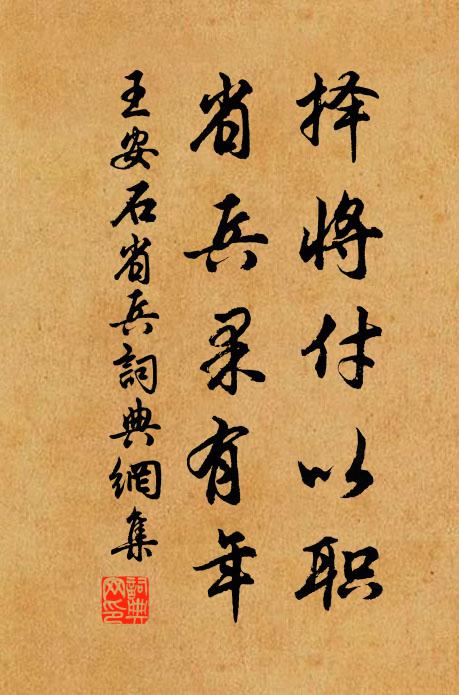 择将付以职
省兵果有年
王安石省兵詞典網集
詞典網印